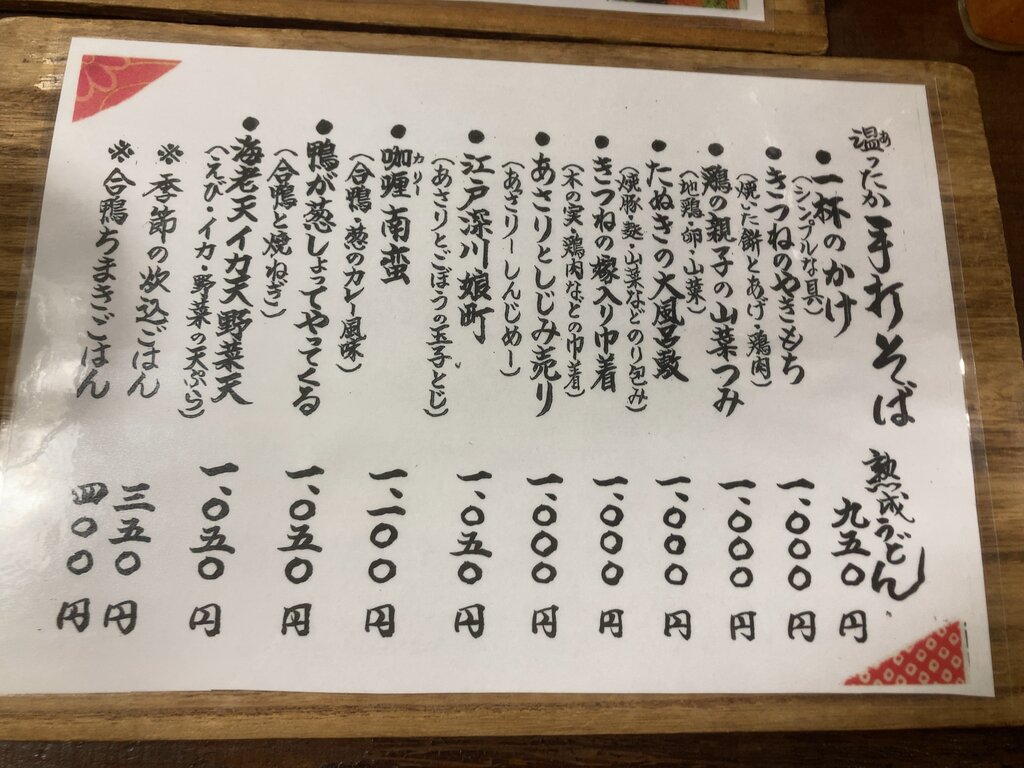 温ったか手打そば 熟成うどん
あ
・一杯のかけ 九五〇円
(シンプルな具)
・きつねのやきもち 一、〇〇〇円
(焼いた餅とあげ・鶏肉)
・鶏の親子の山菜つみ 一、〇〇〇円
(地鶏・卵・山菜)
・たぬきの大風呂敷 一、〇〇〇円
(焼豚・麩・山菜などのり包み)
・きつねの嫁入り巾着 一、〇〇〇円
(木の実・鶏肉などの巾着)
・あさりとしじみ売り 一、〇〇〇円
(あさりーしんじめー)
・江戸深川娘町 一、〇五〇円
(あさりとごぼうの玉子とじ)
・咖喱南蛮 一、一〇〇円
カリー
(合鴨・葱のカレー風味)
・鴨が葱しょってやってくる 一、〇五〇円
(合鴨と焼ねぎ)
・海老天イカ天野菜天 一、〇五〇円
(えび・イカ・野菜の天ぷら)
※季節の炊込ごはん 三五〇円
※合鴨ちまきごはん 四〇〇円